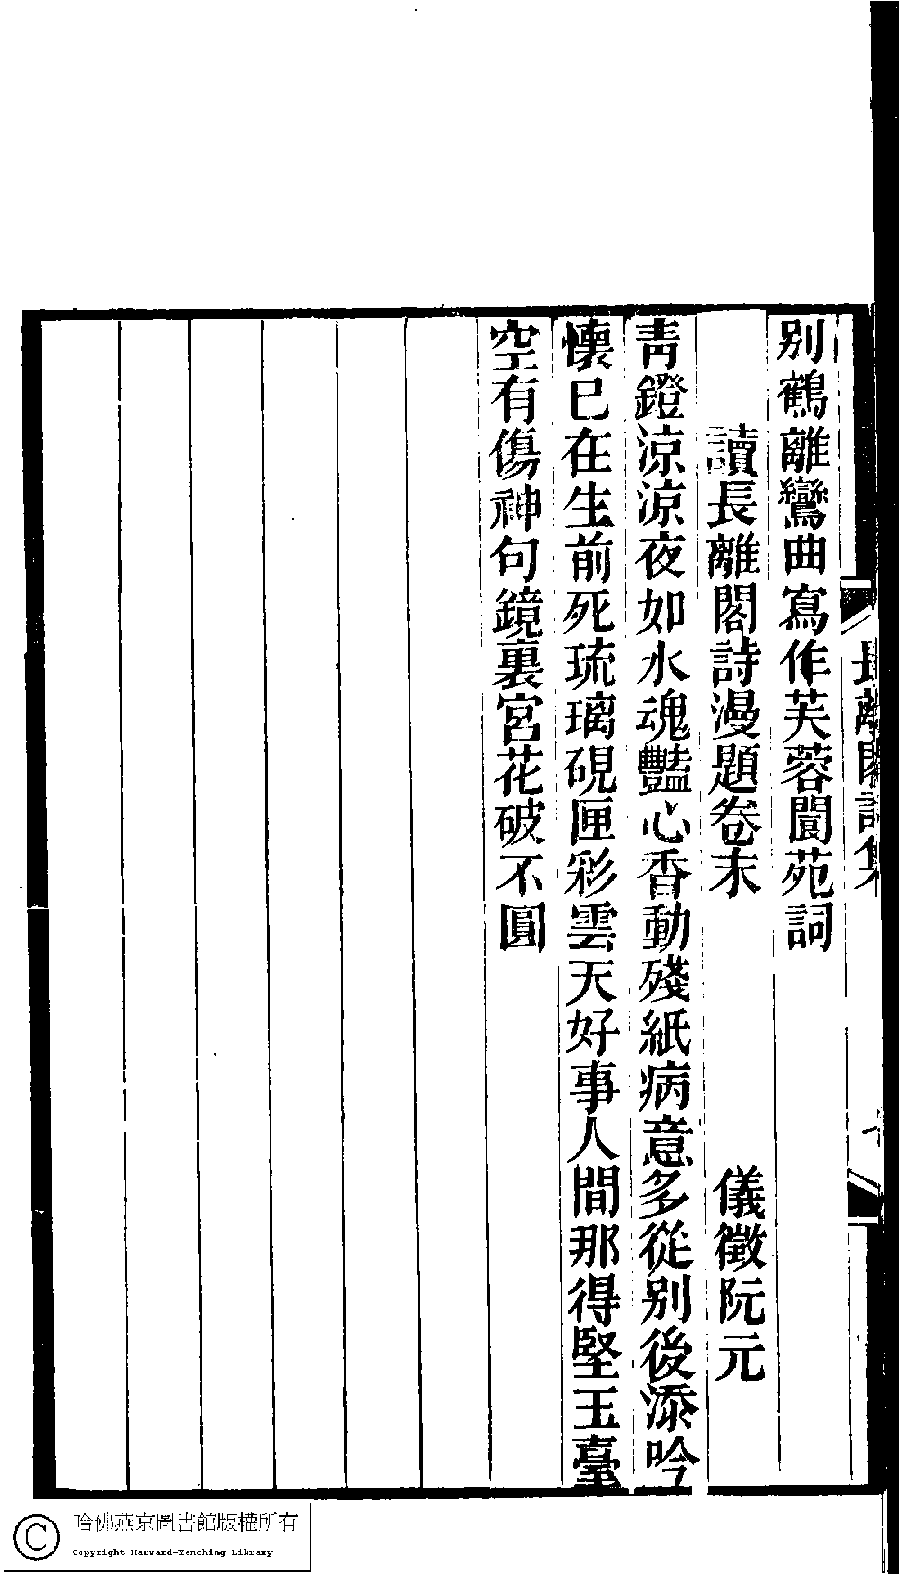 别鶴離鸞曲寫作芙蓉閬苑詞
讀長離閣詩漫題卷末　儀徵阮元
青鐙涼涼夜如水魂豔心香動殘紙病意多從别後添吟
懷已在生前死琉璃硯匣彩雲天好事人間那得堅玉臺
空有傷神句鏡裏宮花破不圓
長離閣詩集
哈佛燕京圖書館版權所有
Copyright Harvard-Yenching Library